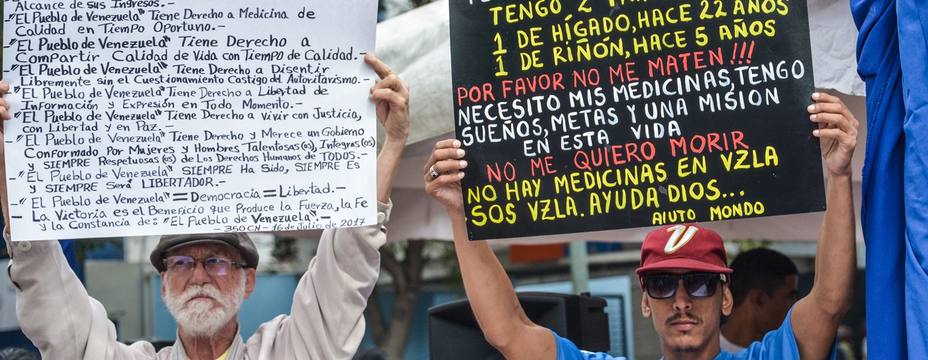 Alcance de sus Ingresos.-
"El Pueblo de Venezuela" Tiene Derecho a Medicina de
Calidad en Tiempo Oportuno.-
"El Pueblo de Venezuela" Tiene Derecho a
Compartir Calidad de Vida con Tiempo de Calidad.-
"El Pueblo de Venezuela" Tiene Derecho a Disentir
Libremente sin el Cuestionamiento Castigo del Autoritarismo.-
"El Pueblo de Venezuela" Tiene Derecho a Libertad de
Información y Expresión en Todo Momento.-
"El Pueblo de Venezuela" Tiene Derecho a Vivir con Justicia,
con Libertad y en Paz.-
"El Pueblo de Venezuela" Tiene Derecho y Merece un Gobierno
Conformado Por Mujeres y Hombres Talentosas(os), Integras(os)
y SIEMPRE Respetuosas(os) de Los Derechos Humanos de TODOS.-
"El Pueblo de Venezuela" SIEMPRE Ha Sido, SIEMPRE Es
y SIEMPRE Será LIBERTADOR.-
"El Pueblo de Venezuela" = Democracia = Libertad.-
- La Victoria es el Beneficio que Produce la Fuerza, la Fe
y la Constancia de: "El Pueblo de Venezuela".-
- 350CN - 16 de Julio de 2017 -
TENGO 2
1 DE HÍGADO, HACE 22 AÑOS
1 DE RIÑÓN, HACE 5 AÑOS
POR FAVOR NO ME MATEN!!!
NECESITO MIS MEDICINAS, TENGO
SUEÑOS, METAS Y UNA MISION
EN ESTA VIDA
NO ME QUIERO MORIR
NO HAY MEDICINAS EN VZLA
SOS VZLA. AYUDA DIOS...
AIUTO MONDO
V